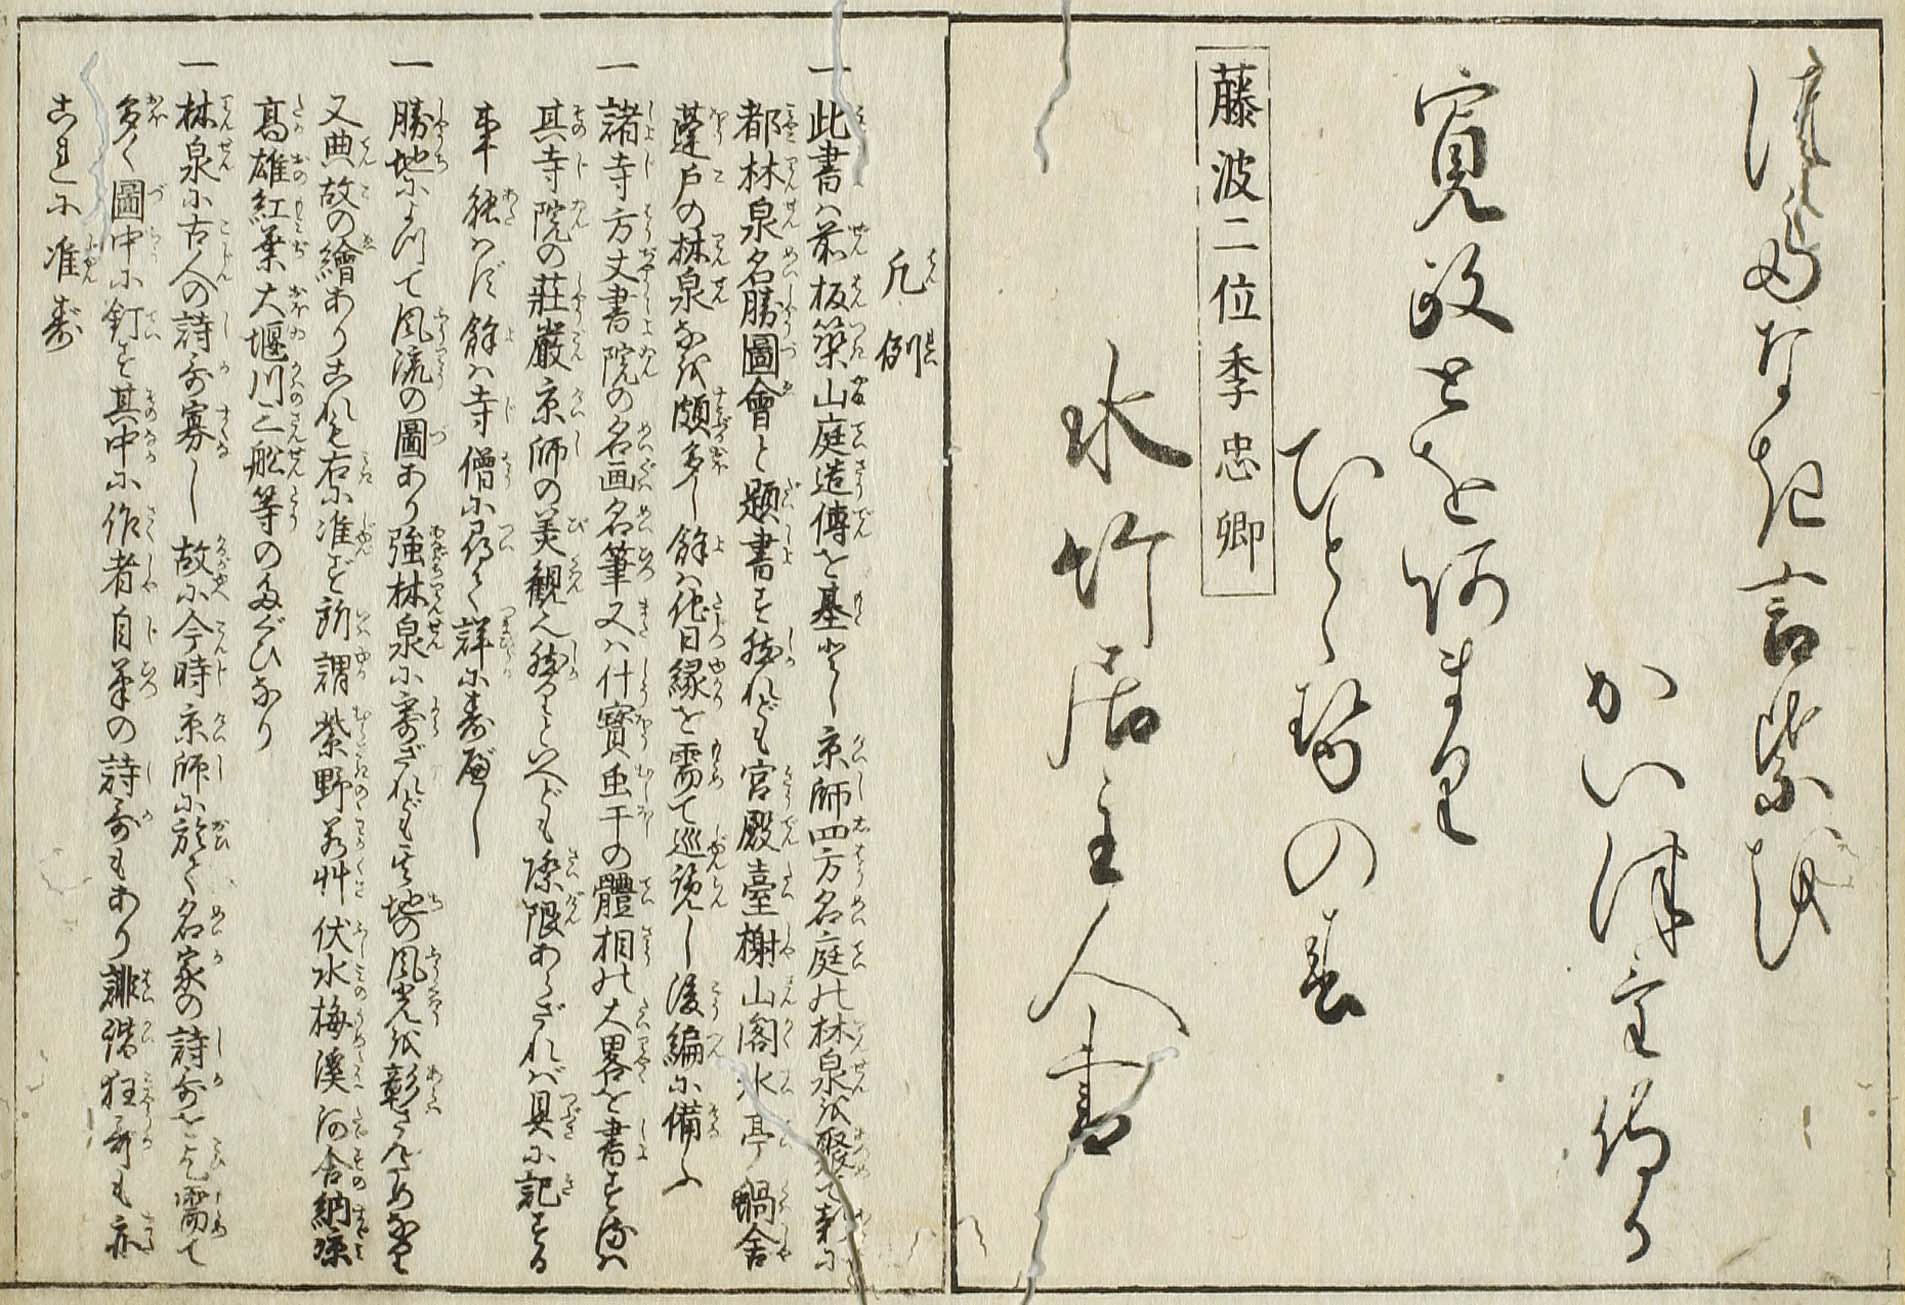 つたなき言葉を
かい津け侍る
寛政とをあまり
ひとゝせの春
藤波二位季忠卿
水竹居主人書
凡例
一此書ハ前板築山庭造傳を基として京師四方名庭の林泉を聚て新に
都林泉名勝圖會と題書す然れども宮殿臺榭山閣水亭蝸舎
蓬戸の林泉なを頗多し餘ハ他日縁を需て巡覧し後編に備ふ
一諸寺方丈書院の名画名筆又ハ什寳虫干の體相の大畧を書するハ
其寺院の荘嚴京師の美観也然りといへども際限あらざれバ具に記する
事能ハず餘ハ寺僧に尋て詳にすべし
一勝地によつて風流の圖あり強林泉に寄ざれども其地の風光を彰さんためなり
又典故の繪ありこれも右に准ず所謂紫野若艸伏水梅溪河合納凉
髙雄紅葉大堰川三舩等のたぐひなり
一林泉に古人の詩哥寡し故に今時京師に於て名家の詩哥を乞需て
多く圖中に釘す其中に作者自筆の詩哥もあり誹諧狂哥も亦
これに准ず